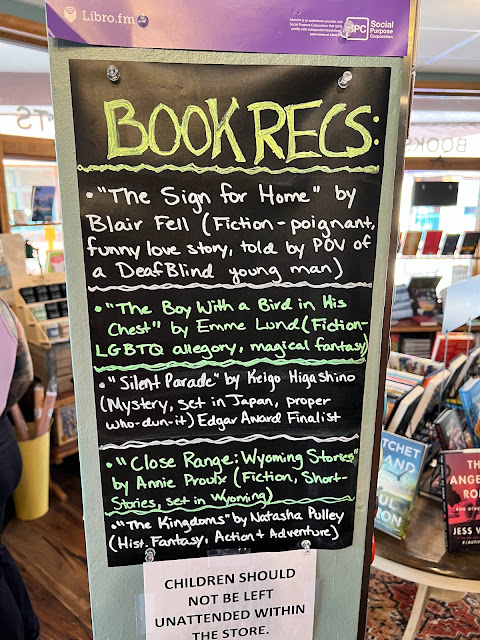 Libro.fm
SPC Social Purpose Corporation
BOOK RECS:
• "The Sign for Home" by
Blair Fell (Fiction - poignant,
funny love story, told by POV of
a DeafBlind young man)
• "The Boy With a Bird in His
Chest" by Emme Lund (Fiction-
LGBTQ allegory, magical fantasy)
• "Silent Parade" by Keigo Higashino
(Mystery, set in Japan, proper
who-dun-it) Edgar Award Finalist
• "Close Range: Wyoming Stories"
by Annie Proulx (Fiction, Short-
Stories, set in Wyoming)
• "The Kingdoms" by Natasha Pulley
(Hist. Fantasy, Action + Adventure)
CHILDREN SHOULD
NOT BE LEFT
UNATTENDED WITHIN
THE STORE.
BOOKS
THE
JESS